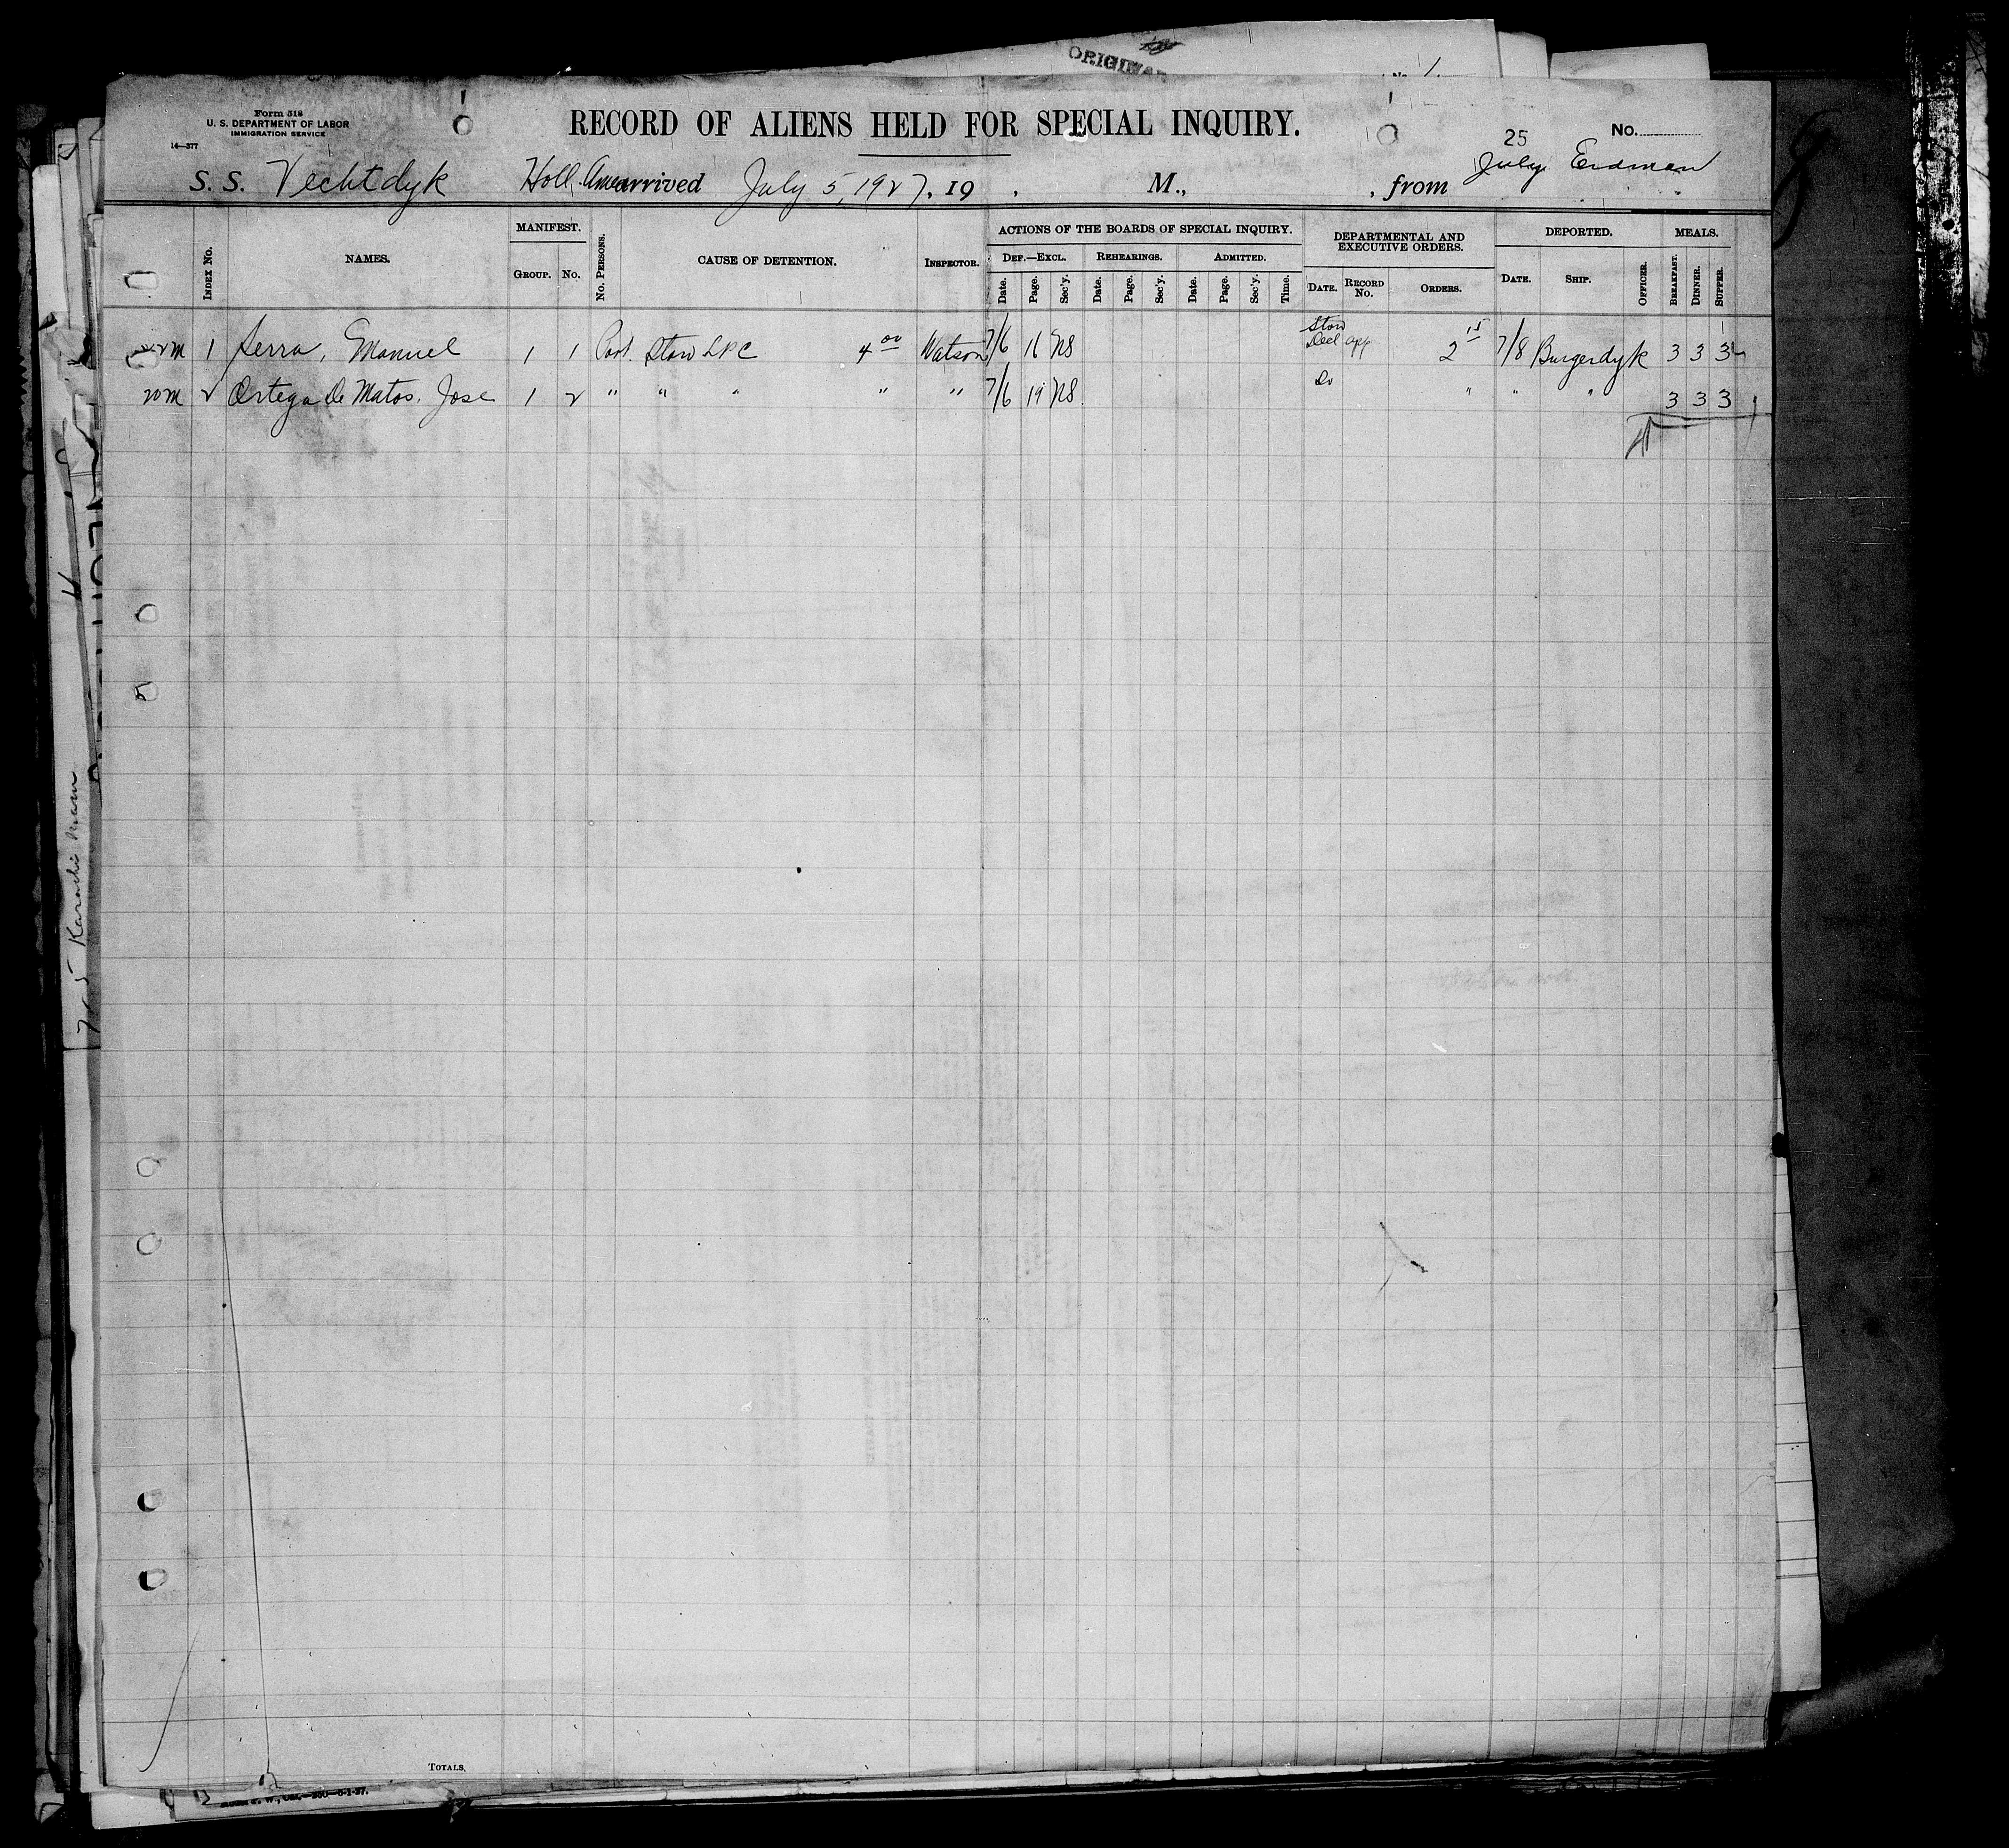 ORIGINAL
No. 1
Form 518
U. S. DEPARTMENT OF LABOR
IMMIGRATION SERVICE
14—377
RECORD OF ALIENS HELD FOR SPECIAL INQUIRY.
25
No.
S. S. Vechtdyk Holl. Am arrived July 5, 1927, 19 , M., , from July Erdman
INDEX No. NAMES. MANIFEST. GROUP. No. No. PERSONS. CAUSE OF DETENTION. INSPECTOR. ACTIONS OF THE BOARDS OF SPECIAL INQUIRY. DEF.—EXCL. Date. Page. Sec'y. REHEARINGS. Date. Page. Sec'y. ADMITTED. Date. Page. Sec'y. Time. DEPARTMENTAL AND EXECUTIVE ORDERS. DATE. RECORD No. ORDERS. DEPORTED. DATE. SHIP. OFFICER. MEALS. BREAKFAST. DINNER. SUPPER.
1 Serra, Manuel 1 1 Port. Stow LPC 4 00 Watson 7/6 16 NS Stow Decl app 2 15 7/8 Burgerdyk 3 3 3
20M 2 Ortega De Matos, Jose 1 2 " " " " " 7/6 19 NS Do " " " 3 3 3
7/25 Karachi Maru
TOTALS.